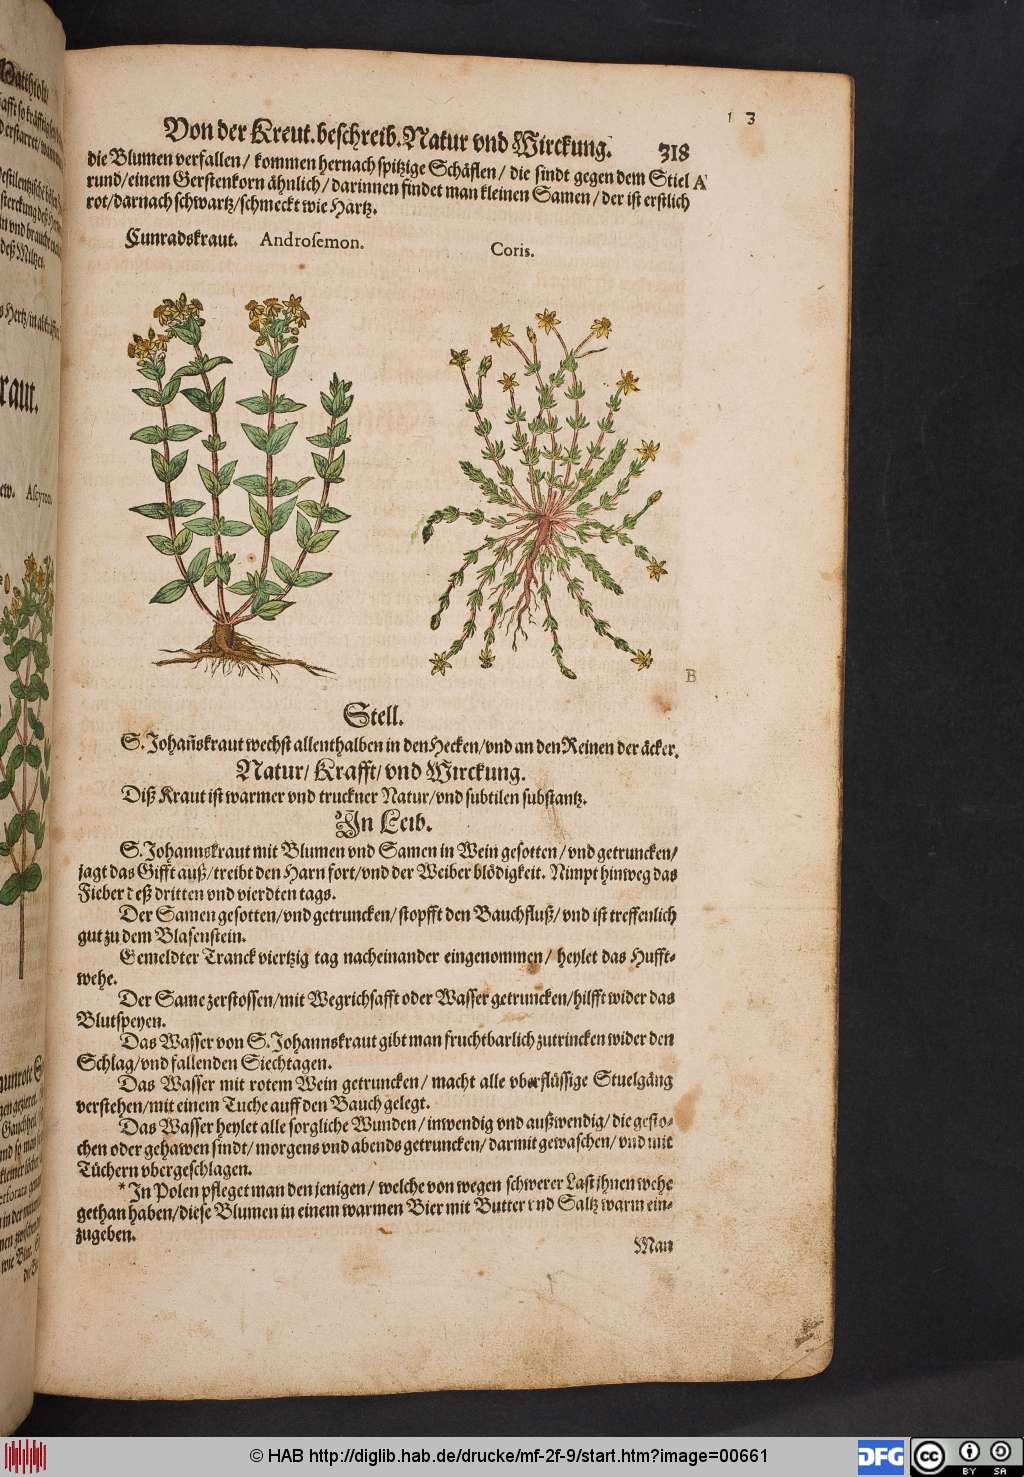 Matthioli
raut.
Ascyron.
1 3
Von der Kreut. beschreib. Natur vnd Wirckung. 318
die Blumen verfallen / kommen hernach spitzige Schäflen / die sindt gegen dem Stiel A
rund/einem Gerstenkorn ähnlich / darinnen findet man kleinen Samen / der ist erstlich
rot/darnach schwartz/schmeckt wie Hartz.
Cunradskraut. Androsemon.
Coris.
B
Stell.
S. Johañskraut wechst allenthalben in den Hecken/vnd an den Reinen der äcker.
Natur/ Krafft/ vnd Wirckung.
Diß Kraut ist warmer vnd truckner Natur/vnd subtilen substantz.
In Leib.
S. Johannskraut mit Blumen vnd Samen in Wein gesotten / vnd getruncken/
jagt das Gifft auß/treibt den Harn fort/vnd der Weiber blödigkeit. Nimpt hinweg das
Fieber deß dritten vnd vierdten tags.
Der Samen gesotten/vnd getruncken/stopfft den Bauchfluß/ vnd ist treffenlich
gut zu dem Blasenstein.
Gemeldter Tranck viertzig tag nacheinander eingenommen / heylet das Hufft-
wehe.
Der Same zerstossen/mit Wegrichsafft oder Wasser getruncken/hilfft wider das
Blutspeyen.
Das Wasser von S. Johannskraut gibt man fruchtbarlich zutrincken wider den
Schlag/vnd fallenden Siechtagen.
Das Wasser mit rotem Wein getruncken / macht alle vberflüssige Stuelgäng
verstehen/mit einem Tuche auff den Bauch gelegt.
Das Wasser heylet alle sorgliche Wunden / inwendig vnd außwendig/ die gesto-
chen oder gehawen sindt/ morgens vnd abends getruncken/ darmit gewaschen/ vnd mit
Tüchern vbergeschlagen.
* In Polen pfleget man den jenigen / welche von wegen schwerer Last jhnen wehe
gethan haben/diese Blumen in einem warmen Bier mit Butter vnd Saltz warm ein-
zugeben.
Man
© HAB http://diglib.hab.de/drucke/mf-2f-9/start.htm?image=00661
DFG
cc
BY SA